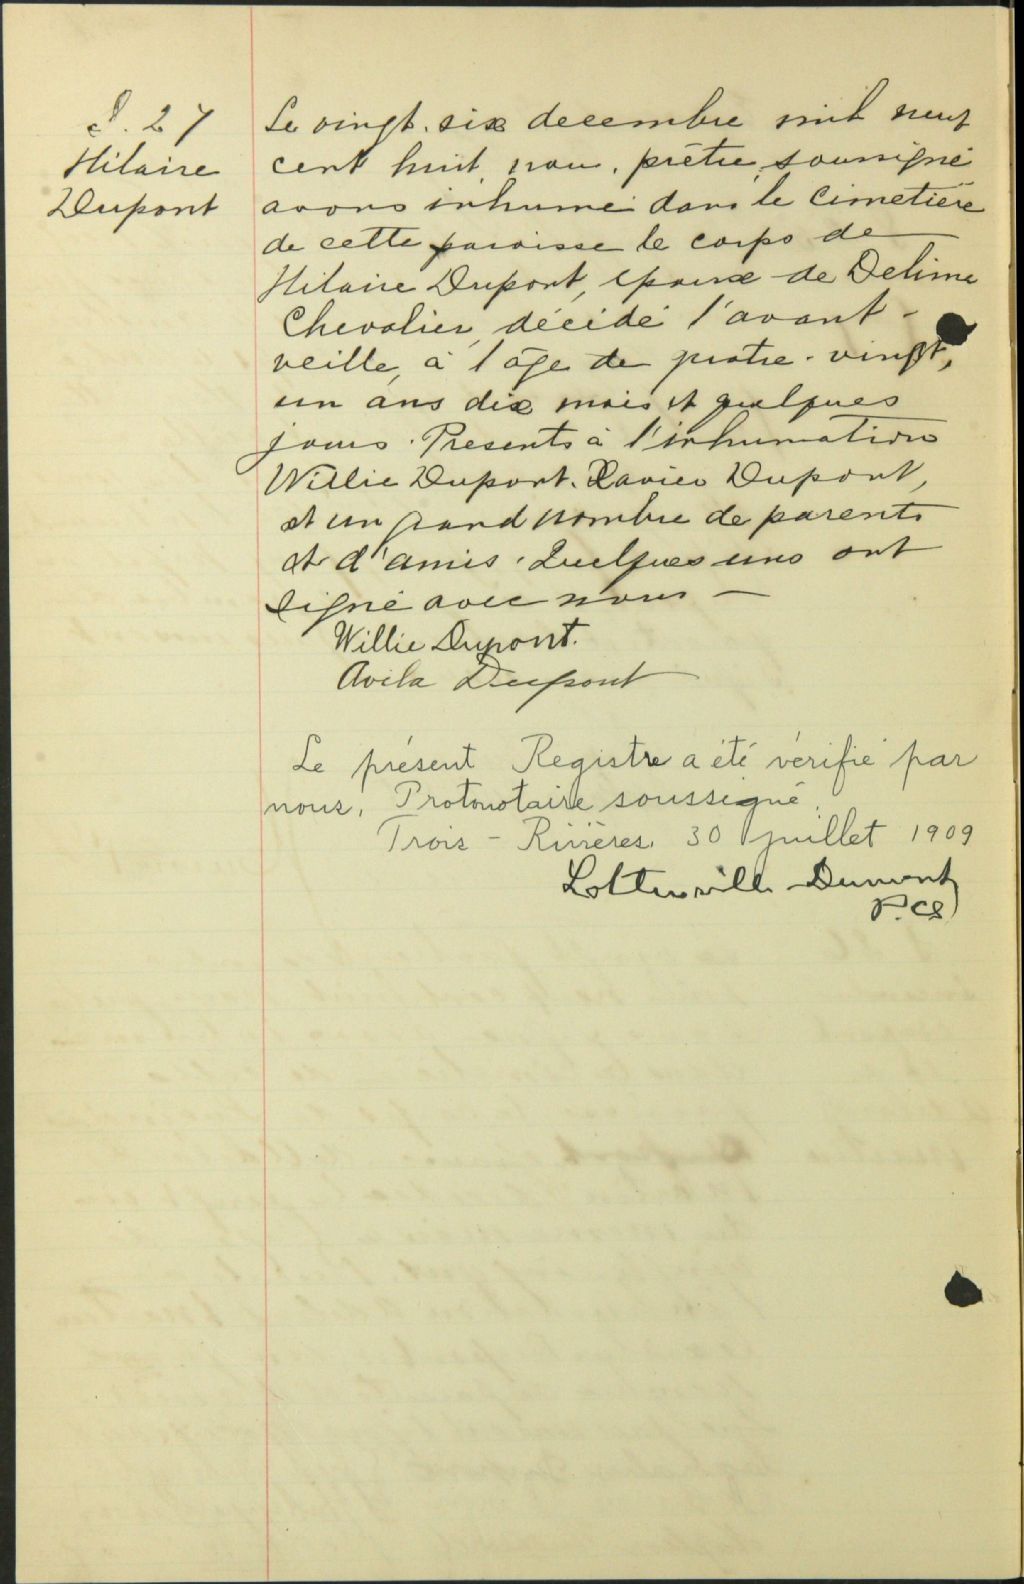 S. 27
Hilaire
Dupont
Le vingt-six decembre mil neuf
cent huit, nous, prêtre, soussigné
avons inhumé dans le cimetière
de cette paroisse le corps de
Hilaire Dupont, epoux de Delima
Chevalier, décédé l'avant-
veille, à l'âge de quatre-vingt,
un ans dix mois et quelques
jours. Presents à l'inhumation
Willie Dupont. Xavier Dupont,
et un grand nombre de parents
et d'amis. Quelques uns ont
signé avec nous —
Willie Dupont.
Avila Dupont
Le présent Registre a été vérifié par
nous, Protonotaire soussigné.
Trois-Rivières, 30 juillet 1909
Dumont
P.CS